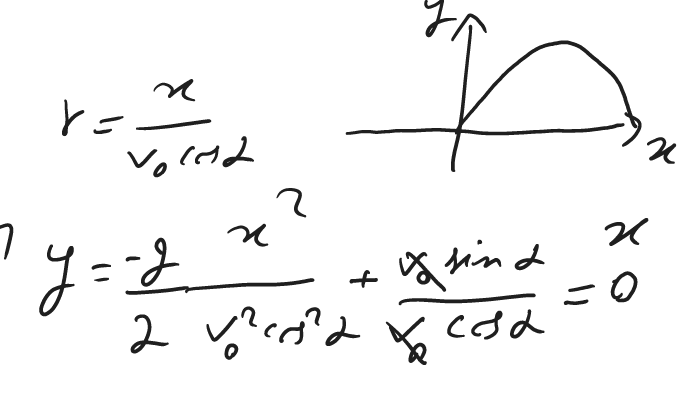 y
x
r = x / v₀ cos α
y = -g x² / 2 v₀² cos² α + v₀ sin α / v₀ cos α x = 0